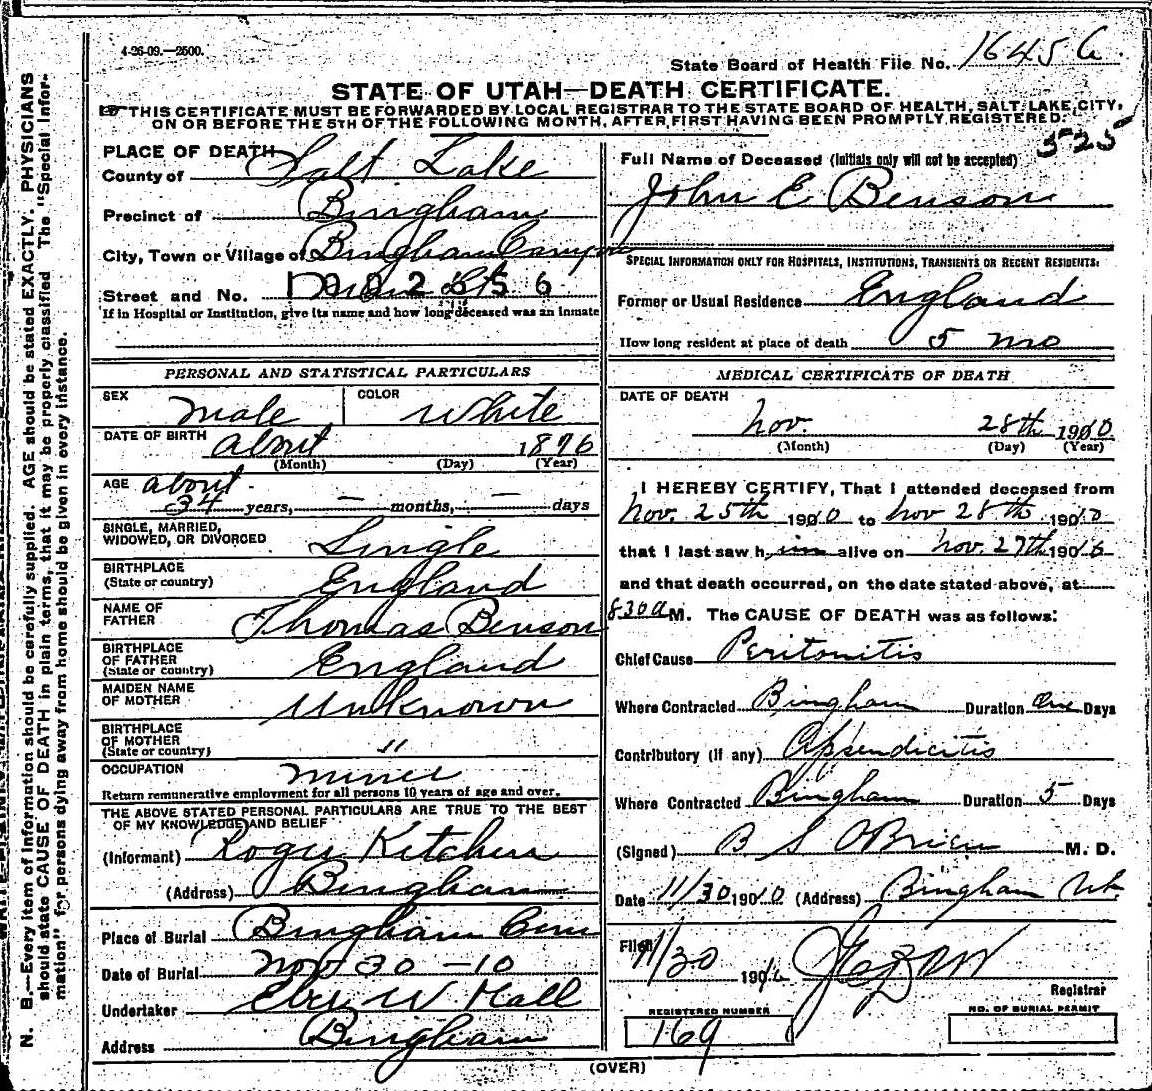 4-26-09.—2500.
State Board of Health File No. 1645 6.
STATE OF UTAH—DEATH CERTIFICATE.
THIS CERTIFICATE MUST BE FORWARDED BY LOCAL REGISTRAR TO THE STATE BOARD OF HEALTH, SALT LAKE CITY,
ON OR BEFORE THE 5TH OF THE FOLLOWING MONTH, AFTER FIRST HAVING BEEN PROMPTLY REGISTERED.
525
PLACE OF DEATH
County of Salt Lake
Precinct of Bingham
City, Town or Village of Bingham Canyon
Street and No. Main St
If in Hospital or Institution, give its name and how long deceased was an inmate
PERSONAL AND STATISTICAL PARTICULARS
SEX Male COLOR White
DATE OF BIRTH about 1876
(Month) (Day) (Year)
AGE about
34 years, — months, — days
SINGLE, MARRIED,
WIDOWED, OR DIVORCED Single
BIRTHPLACE
(State or country) England
NAME OF
FATHER Thomas Benson
BIRTHPLACE
OF FATHER
(State or country) England
MAIDEN NAME
OF MOTHER Unknown
BIRTHPLACE
OF MOTHER
(State or country) "
OCCUPATION Miner
Return remunerative employment for all persons 10 years of age and over.
THE ABOVE STATED PERSONAL PARTICULARS ARE TRUE TO THE BEST
OF MY KNOWLEDGE AND BELIEF
(Informant) Roger Kitchen
(Address) Bingham
Place of Burial Bingham Cem
Date of Burial Nov 30 -10
Undertaker W Hall
Address Bingham
Full Name of Deceased (Initials only will not be accepted)
John E Benson
SPECIAL INFORMATION ONLY FOR HOSPITALS, INSTITUTIONS, TRANSIENTS OR RECENT RESIDENTS:
Former or Usual Residence England
How long resident at place of death 5 mo
MEDICAL CERTIFICATE OF DEATH
DATE OF DEATH
Nov. 28th 1910
(Month) (Day) (Year)
I HEREBY CERTIFY, That I attended deceased from
Nov. 25th 1910 to Nov 28th 1910
that I last saw him alive on Nov. 27th 1910
and that death occurred, on the date stated above, at
830 a M. The CAUSE OF DEATH was as follows:
Chief Cause Peritonitis
Where Contracted Bingham Duration One Days
Contributory (if any) Appendicitis
Where Contracted Bingham Duration 5 Days
(Signed) B S OBrien M. D.
Date 11/30 1910 (Address) Bingham Ut
Filed 11/30 1910
Registrar
REGISTERED NUMBER
169
NO. OF BURIAL PERMIT
(OVER)
N. B.—Every item of information should be carefully supplied. AGE should be stated EXACTLY. PHYSICIANS
should state CAUSE OF DEATH in plain terms, that it may be properly classified. The "Special Infor-
mation" for persons dying away from home should be given in every instance.